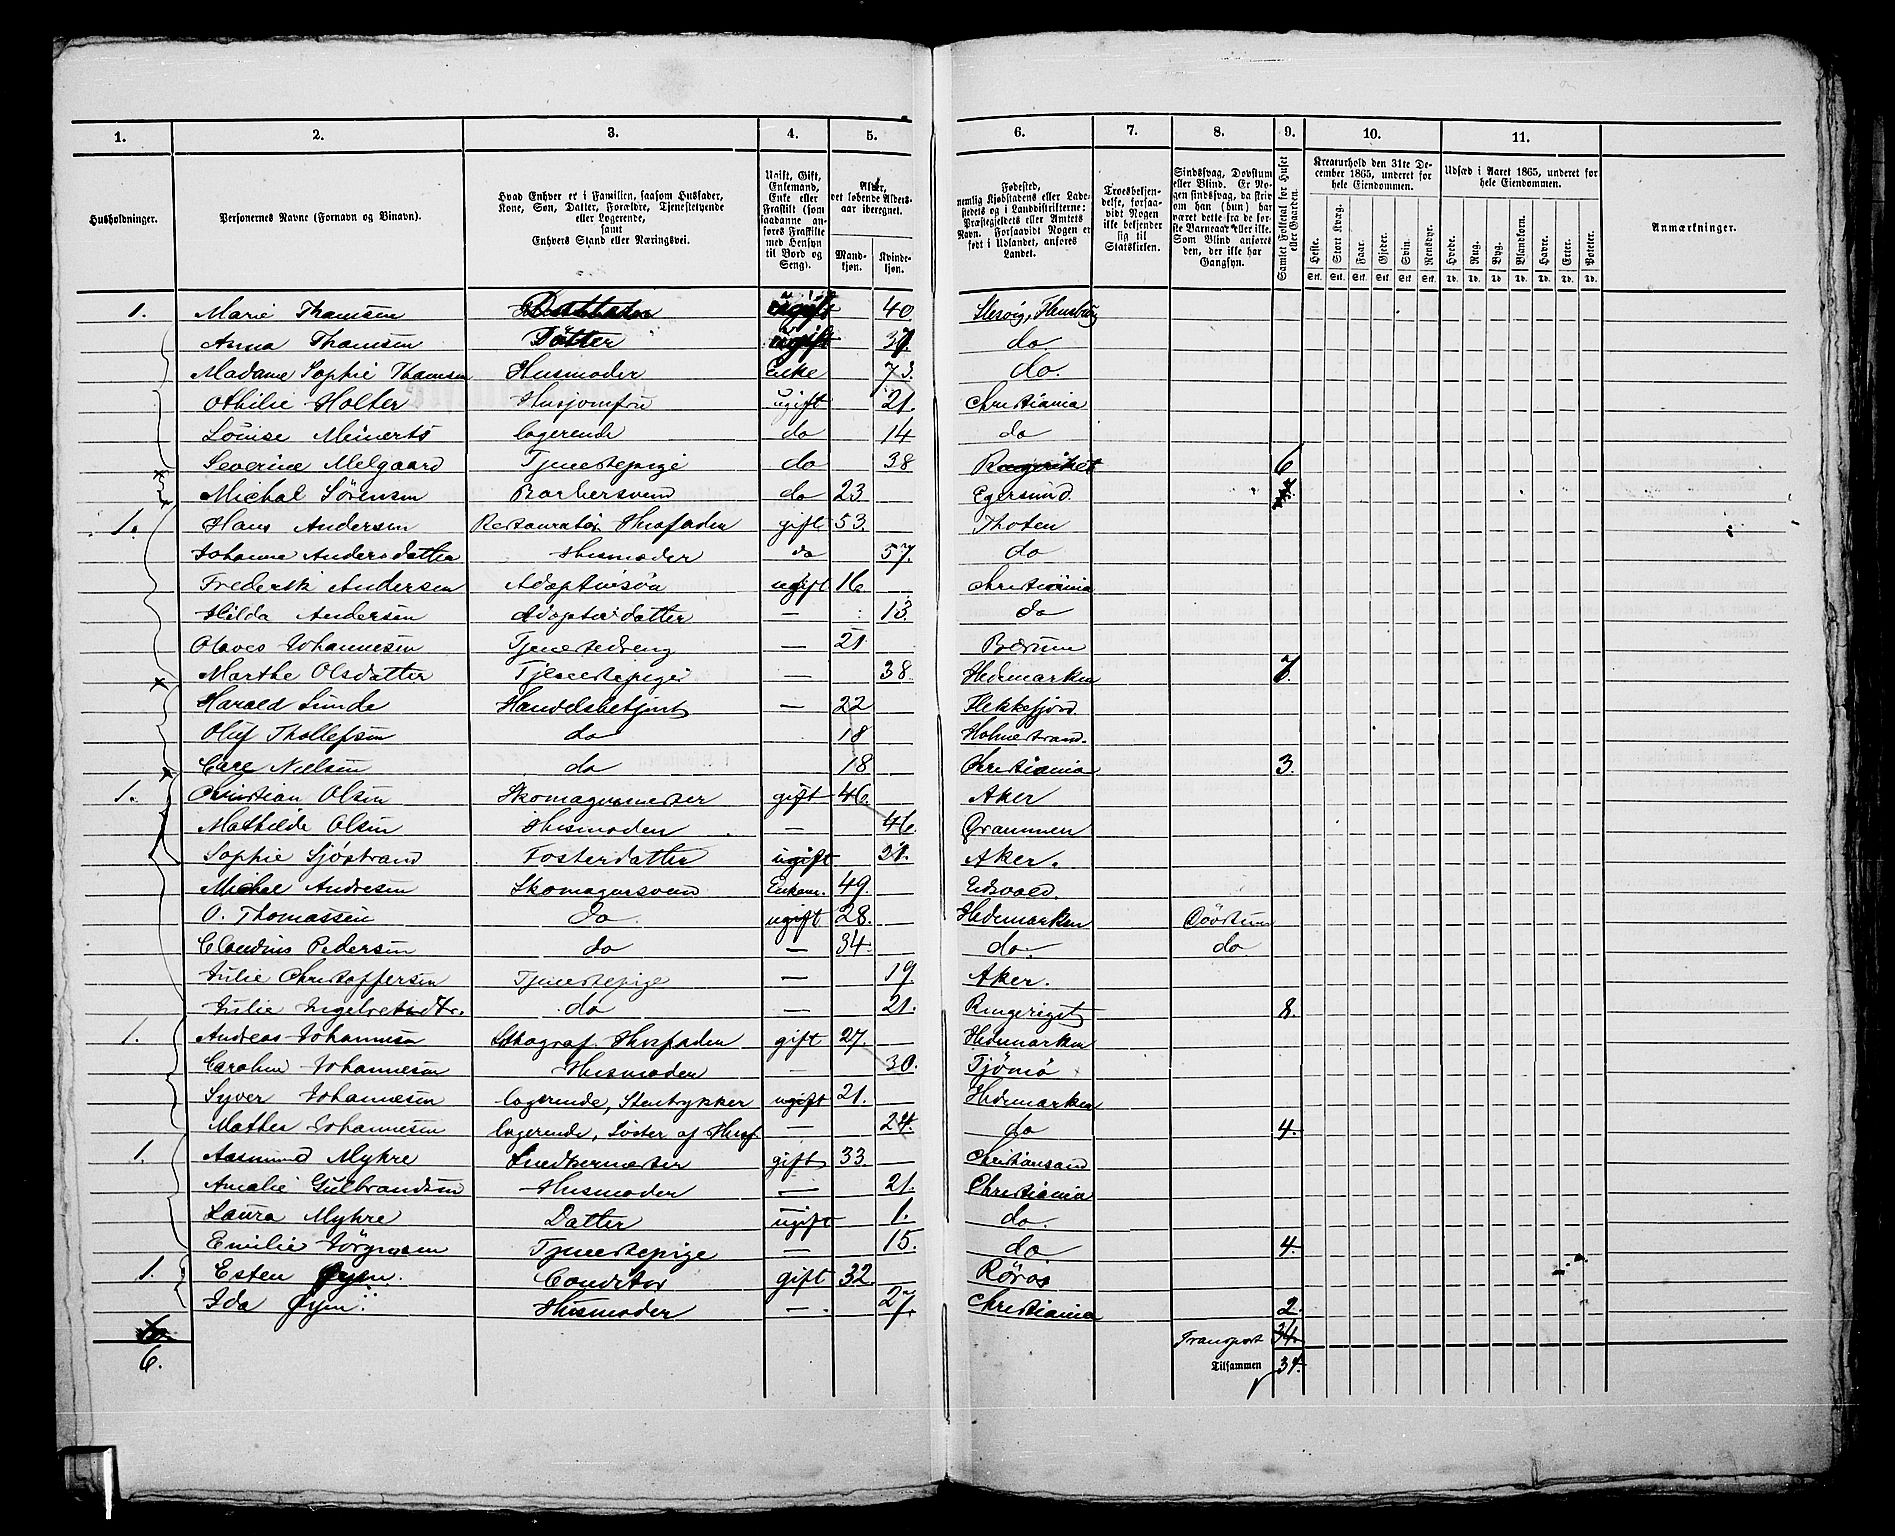 1. 2. 3. 4. 5. 6. 7. 8. 9. 10. 11.
Husholdninger. Personernes Navne (Fornavn og Binavn). Hvad Enhver er i Familien, saasom Husfader, Kone, Søn, Datter, Forældre, Tjenestetyende eller Logerende, samt Enhvers Stand eller Næringsvei. Ugift, Gift, Enkemand, Enke eller Fraskilt (som saadanne anføres Fraskilte med Hensyn til Bord og Seng). Alder, det løbende Aldersaar iberegnet. Mandkjøn. Kvindekjøn. Fødested, nemlig Kjøbstadens eller Ladestedets og i Landdistrikterne: Præstegjeldets eller Amtets Navn. Forsaavidt Nogen er født i Udlandet, anføres Landet. Troesbekjendelse, forsaavidt Nogen ikke bekjender sig til Statskirken. Sindssvag, Døvstum eller Blind. Er Nogen sindssvag, da skrives om han (hun) har været dette fra de første Barneaar eller ikke. Som Blind anføres den, der ikke har Gangsyn. Samlet Folketal for Huset eller Gaarden. Kreaturhold den 31te December 1865, underet for hele Eiendommen. Udsæd i Aaret 1865, underet for hele Eiendommen. Anmærkninger.
Heste. Stort Kvæg. Faar. Gjeder. Svin. Rensdyr. Hvede. Rug. Byg. Blandkorn. Havre. Erter. Poteter.
Stk. Stk. Stk. Stk. Stk. Stk. Td. Td. Td. Td. Td. Td. Td.
1. Marie Thamsen ugift 40 Slesvig, Flensburg
Anna Thamsen Datter ugift 37. do.
Madame Sophie Thamsen Husmoder Enke 73. do.
Othilie Holter Husjomfru ugift 21. Christiania
Louise Meinerts logerende do 14 do
Severine Melgaard Tjenestepige do 38 Ringeriket 6
Michal Sørensen Barbersvend do 23 Egersund.
1. Hans Andersen Restauratør Husfaden gift 53. Thoten
Johanne Andersdatter Husmoder do 57. do
Frederik Andersen Adoptivsøn ugift 16 Christiania
Hilda Andersen Adoptivdatter — 13. do
Olaves Johannesen Tjenestedreng — 21 Bærum
Marthe Olsdatter Tjenestepige — 38. Hedemarken 7.
Harald Sunde Handelsbetjent — 22 Flekkefjord.
Oluf Thollefsen do 18 Holmestrand.
Carl Nielsen do 18 Christiania 3.
1. Christian Olsen Skomagermester gift 46. Aker
Mathilde Olsen Husmoden — 46. Drammen
Sophie Sjöstrand Fosterdatter ugift 21. Aker.
Michel Andresen Skomagersvend Enkem. 49. Eidsvold.
O. Thomassen do. ugift 28. Hedemarken Døvstum
Claudius Pedersen do — 34. do. do
Julie Christoffersen Tjenestepige — 19. Aker.
Julie Ingebretsdtr. do — 21. Ringeriget 8.
1. Andreas Johannesen Lithograf. Husfaden gift 27. Hedemarken
Caroline Johannesen Husmoden — 30. Tjömö
Syver Johannesen logerende, Stentrykker ugift 21. Hedemarken
Mathea Johannesen logerende, Søster af Husf. — 24. do 4.
1. Aasmund Myhre Snedkermester gift 33 Christiansand
Amalie Gulbrandsen Husmoder — 21. Christiania
Laura Myhre Datter ugift 1. do.
Emilie Jørgensen Tjenestepige — 15. do 4.
1. Esten Øyen. Conditor gift 32. Röros
Ida Øyen Husmoder — 27. Christiania 2.
Transport 34.
6. Tilsammen 34.